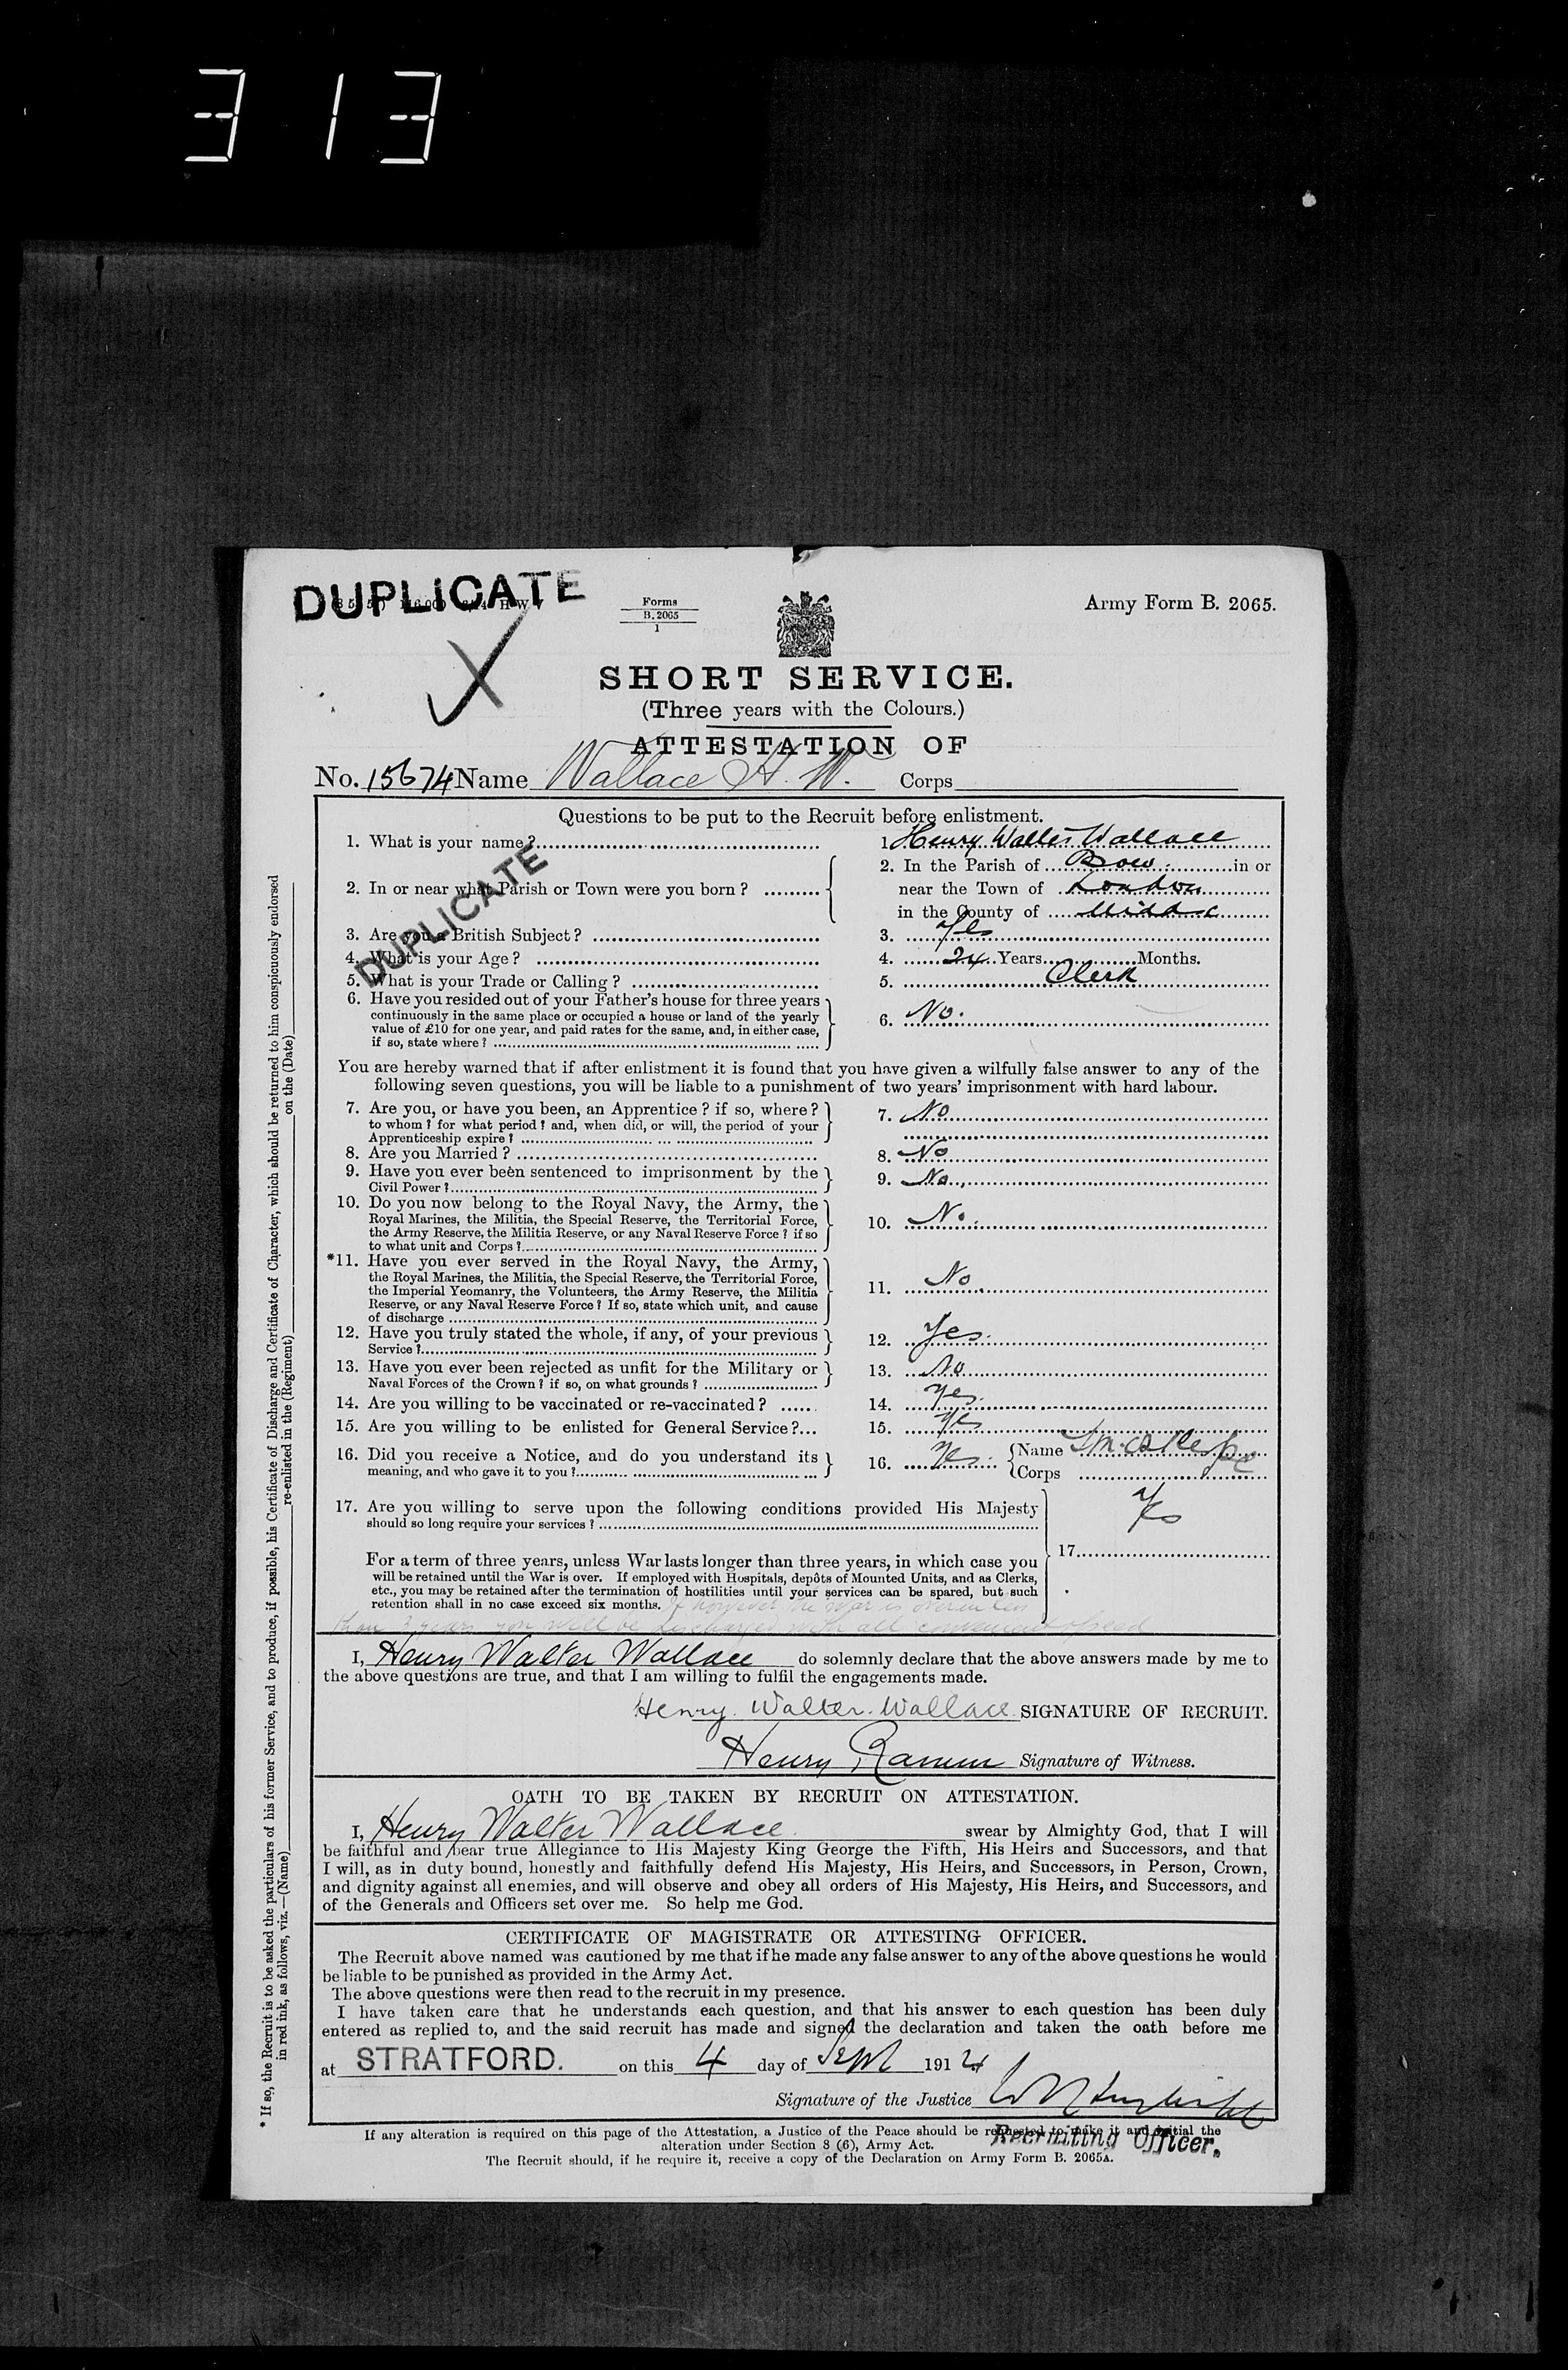 313
DUPLICATE
Forms
B. 2065
1
Army Form B. 2065.
SHORT SERVICE.
(Three years with the Colours.)
ATTESTATION OF
No. 15674 Name Wallace H. W. Corps
Questions to be put to the Recruit before enlistment.
1. What is your name? 1. Henry Walter Wallace
2. In or near what Parish or Town were you born ? 2. In the Parish of Bow in or
near the Town of London
in the County of Middx
DUPLICATE
3. Are you a British Subject ? 3. Yes
4. What is your Age ? 4. 24 Years Months.
5. What is your Trade or Calling ? 5. Clerk
6. Have you resided out of your Father's house for three years
continuously in the same place or occupied a house or land of the yearly
value of £10 for one year, and paid rates for the same, and, in either case,
if so, state where ? 6. No.
You are hereby warned that if after enlistment it is found that you have given a wilfully false answer to any of the
following seven questions, you will be liable to a punishment of two years' imprisonment with hard labour.
7. Are you, or have you been, an Apprentice ? if so, where ?
to whom ? for what period ? and, when did, or will, the period of your
Apprenticeship expire ? 7. No
8. Are you Married ? 8. No
9. Have you ever been sentenced to imprisonment by the
Civil Power ? 9. No.
10. Do you now belong to the Royal Navy, the Army, the
Royal Marines, the Militia, the Special Reserve, the Territorial Force,
the Army Reserve, the Militia Reserve, or any Naval Reserve Force ? if so
to what unit and Corps ? 10. No.
*11. Have you ever served in the Royal Navy, the Army,
the Royal Marines, the Militia, the Special Reserve, the Territorial Force,
the Imperial Yeomanry, the Volunteers, the Army Reserve, the Militia
Reserve, or any Naval Reserve Force ? If so, state which unit, and cause
of discharge 11. No
12. Have you truly stated the whole, if any, of your previous
Service ? 12. Yes.
13. Have you ever been rejected as unfit for the Military or
Naval Forces of the Crown ? if so, on what grounds ? 13. No
14. Are you willing to be vaccinated or re-vaccinated ? 14. Yes.
15. Are you willing to be enlisted for General Service ?... 15. Yes
16. Did you receive a Notice, and do you understand its
meaning, and who gave it to you ? 16. Yes. Name
Corps
17. Are you willing to serve upon the following conditions provided His Majesty
should so long require your services ? Yes
17.
For a term of three years, unless War lasts longer than three years, in which case you
will be retained until the War is over. If employed with Hospitals, depôts of Mounted Units, and as Clerks,
etc., you may be retained after the termination of hostilities until your services can be spared, but such
retention shall in no case exceed six months. If however the war is over in less
than 3 years you will be discharged with all convenient speed
I, Henry Walter Wallace do solemnly declare that the above answers made by me to
the above questions are true, and that I am willing to fulfil the engagements made.
Henry. Walter. Wallace. SIGNATURE OF RECRUIT.
Henry Signature of Witness.
OATH TO BE TAKEN BY RECRUIT ON ATTESTATION.
I, Henry Walter Wallace swear by Almighty God, that I will
be faithful and bear true Allegiance to His Majesty King George the Fifth, His Heirs and Successors, and that
I will, as in duty bound, honestly and faithfully defend His Majesty, His Heirs, and Successors, in Person, Crown,
and dignity against all enemies, and will observe and obey all orders of His Majesty, His Heirs, and Successors, and
of the Generals and Officers set over me. So help me God.
CERTIFICATE OF MAGISTRATE OR ATTESTING OFFICER.
The Recruit above named was cautioned by me that if he made any false answer to any of the above questions he would
be liable to be punished as provided in the Army Act.
The above questions were then read to the recruit in my presence.
I have taken care that he understands each question, and that his answer to each question has been duly
entered as replied to, and the said recruit has made and signed the declaration and taken the oath before me
at STRATFORD. on this 4 day of Sept 1914
Signature of the Justice
Recruiting Officer.
If any alteration is required on this page of the Attestation, a Justice of the Peace should be requested to make it and initial the
alteration under Section 8 (6), Army Act.
The Recruit should, if he require it, receive a copy of the Declaration on Army Form B. 2065A.
* If so, the Recruit is to be asked the particulars of his former Service, and to produce, if possible, his Certificate of Discharge and Certificate of Character, which should be returned to him conspicuously endorsed
in red ink, as follows, viz.—(Name) re-enlisted in the (Regiment) on the (Date)